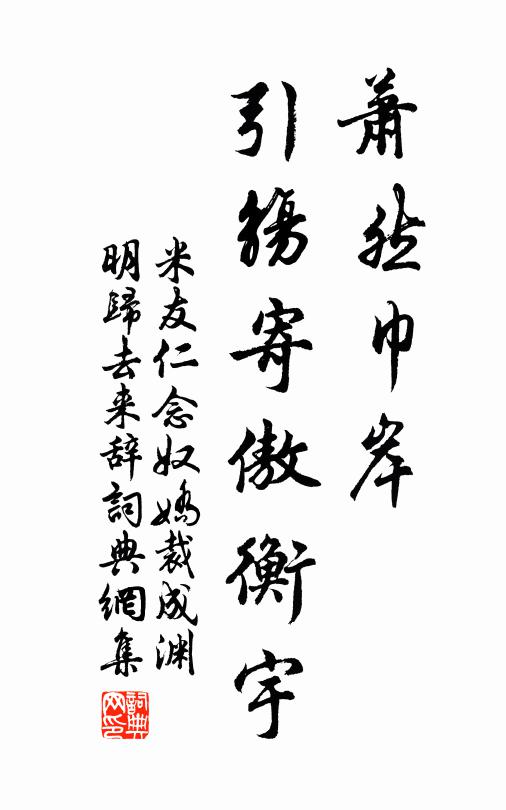 蕭然巾岸
引觴寄傲衡宇
米友仁念奴嬌裁成渊
明歸去来辞詞典網集
詞典网印